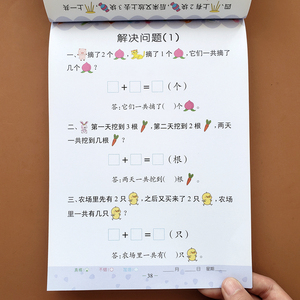 解决问题(1)
一、摘了2个，摘了1个，它们一共摘了
几个？
□+□=□(个)
答:它们一共摘了( )个。
二、第一天挖到3根，第二天挖到2根，两天
一共挖到几根？
□+□=□(根)
答:两天一共挖到( )根。
三、农场里先有2只，之后又买来了2只，农场
里一共有几只？
□+□=□(只)
答:农场里一共有( )只。
- 38 -